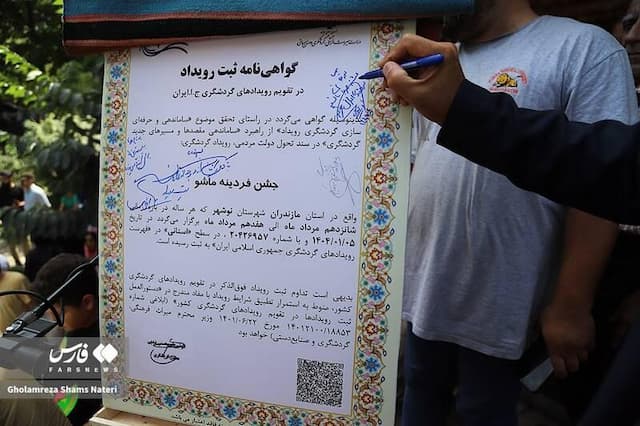 وزارت میراث‌فرهنگی، گردشگری و صنایع‌دستی
گواهی‌نامه ثبت رویداد
در تقویم رویدادهای گردشگری ج.ا.ایران
بدینوسیله گواهی می‌گردد در راستای تحقق موضوع «ساماندهی و حرفه‌ای
سازی گردشگری رویداد» از راهبرد «ساماندهی مقصدها و مسیرهای جدید
گردشگری» در سند تحول دولت مردمی، رویداد گردشگری:
جشن فردینه ماشو
واقع در استان مازندران شهرستان نوشهر که هر ساله در بازه
شانزدهم مرداد ماه الی هفدهم مرداد ماه برگزار می‌گردد در تاریخ
۱۴۰۴/۰۱/۰۵ و با شماره ۲۰۴۲۶۹۵۷ ، در سطح «استانی» در «فهرست
رویدادهای گردشگری جمهوری اسلامی ایران» به ثبت رسیده است.
بدیهی است تداوم ثبت رویداد فوق‌الذکر در تقویم رویدادهای گردشگری
کشور، منوط به استمرار تطبیق شرایط رویداد با مفاد مندرج در «دستورالعمل
ثبت رویدادها در تقویم رویدادهای گردشگری کشور» (ابلاغی شماره
۱۴۰۱۲۱۰۰/۱۸۸۵۳ مورخ ۱۴۰۱/۰۶/۲۲ وزیر محترم میراث فرهنگی،
گردشگری و صنایع‌دستی) خواهد بود.
فارس
FARSNEWS
Gholamreza Shams Nateri